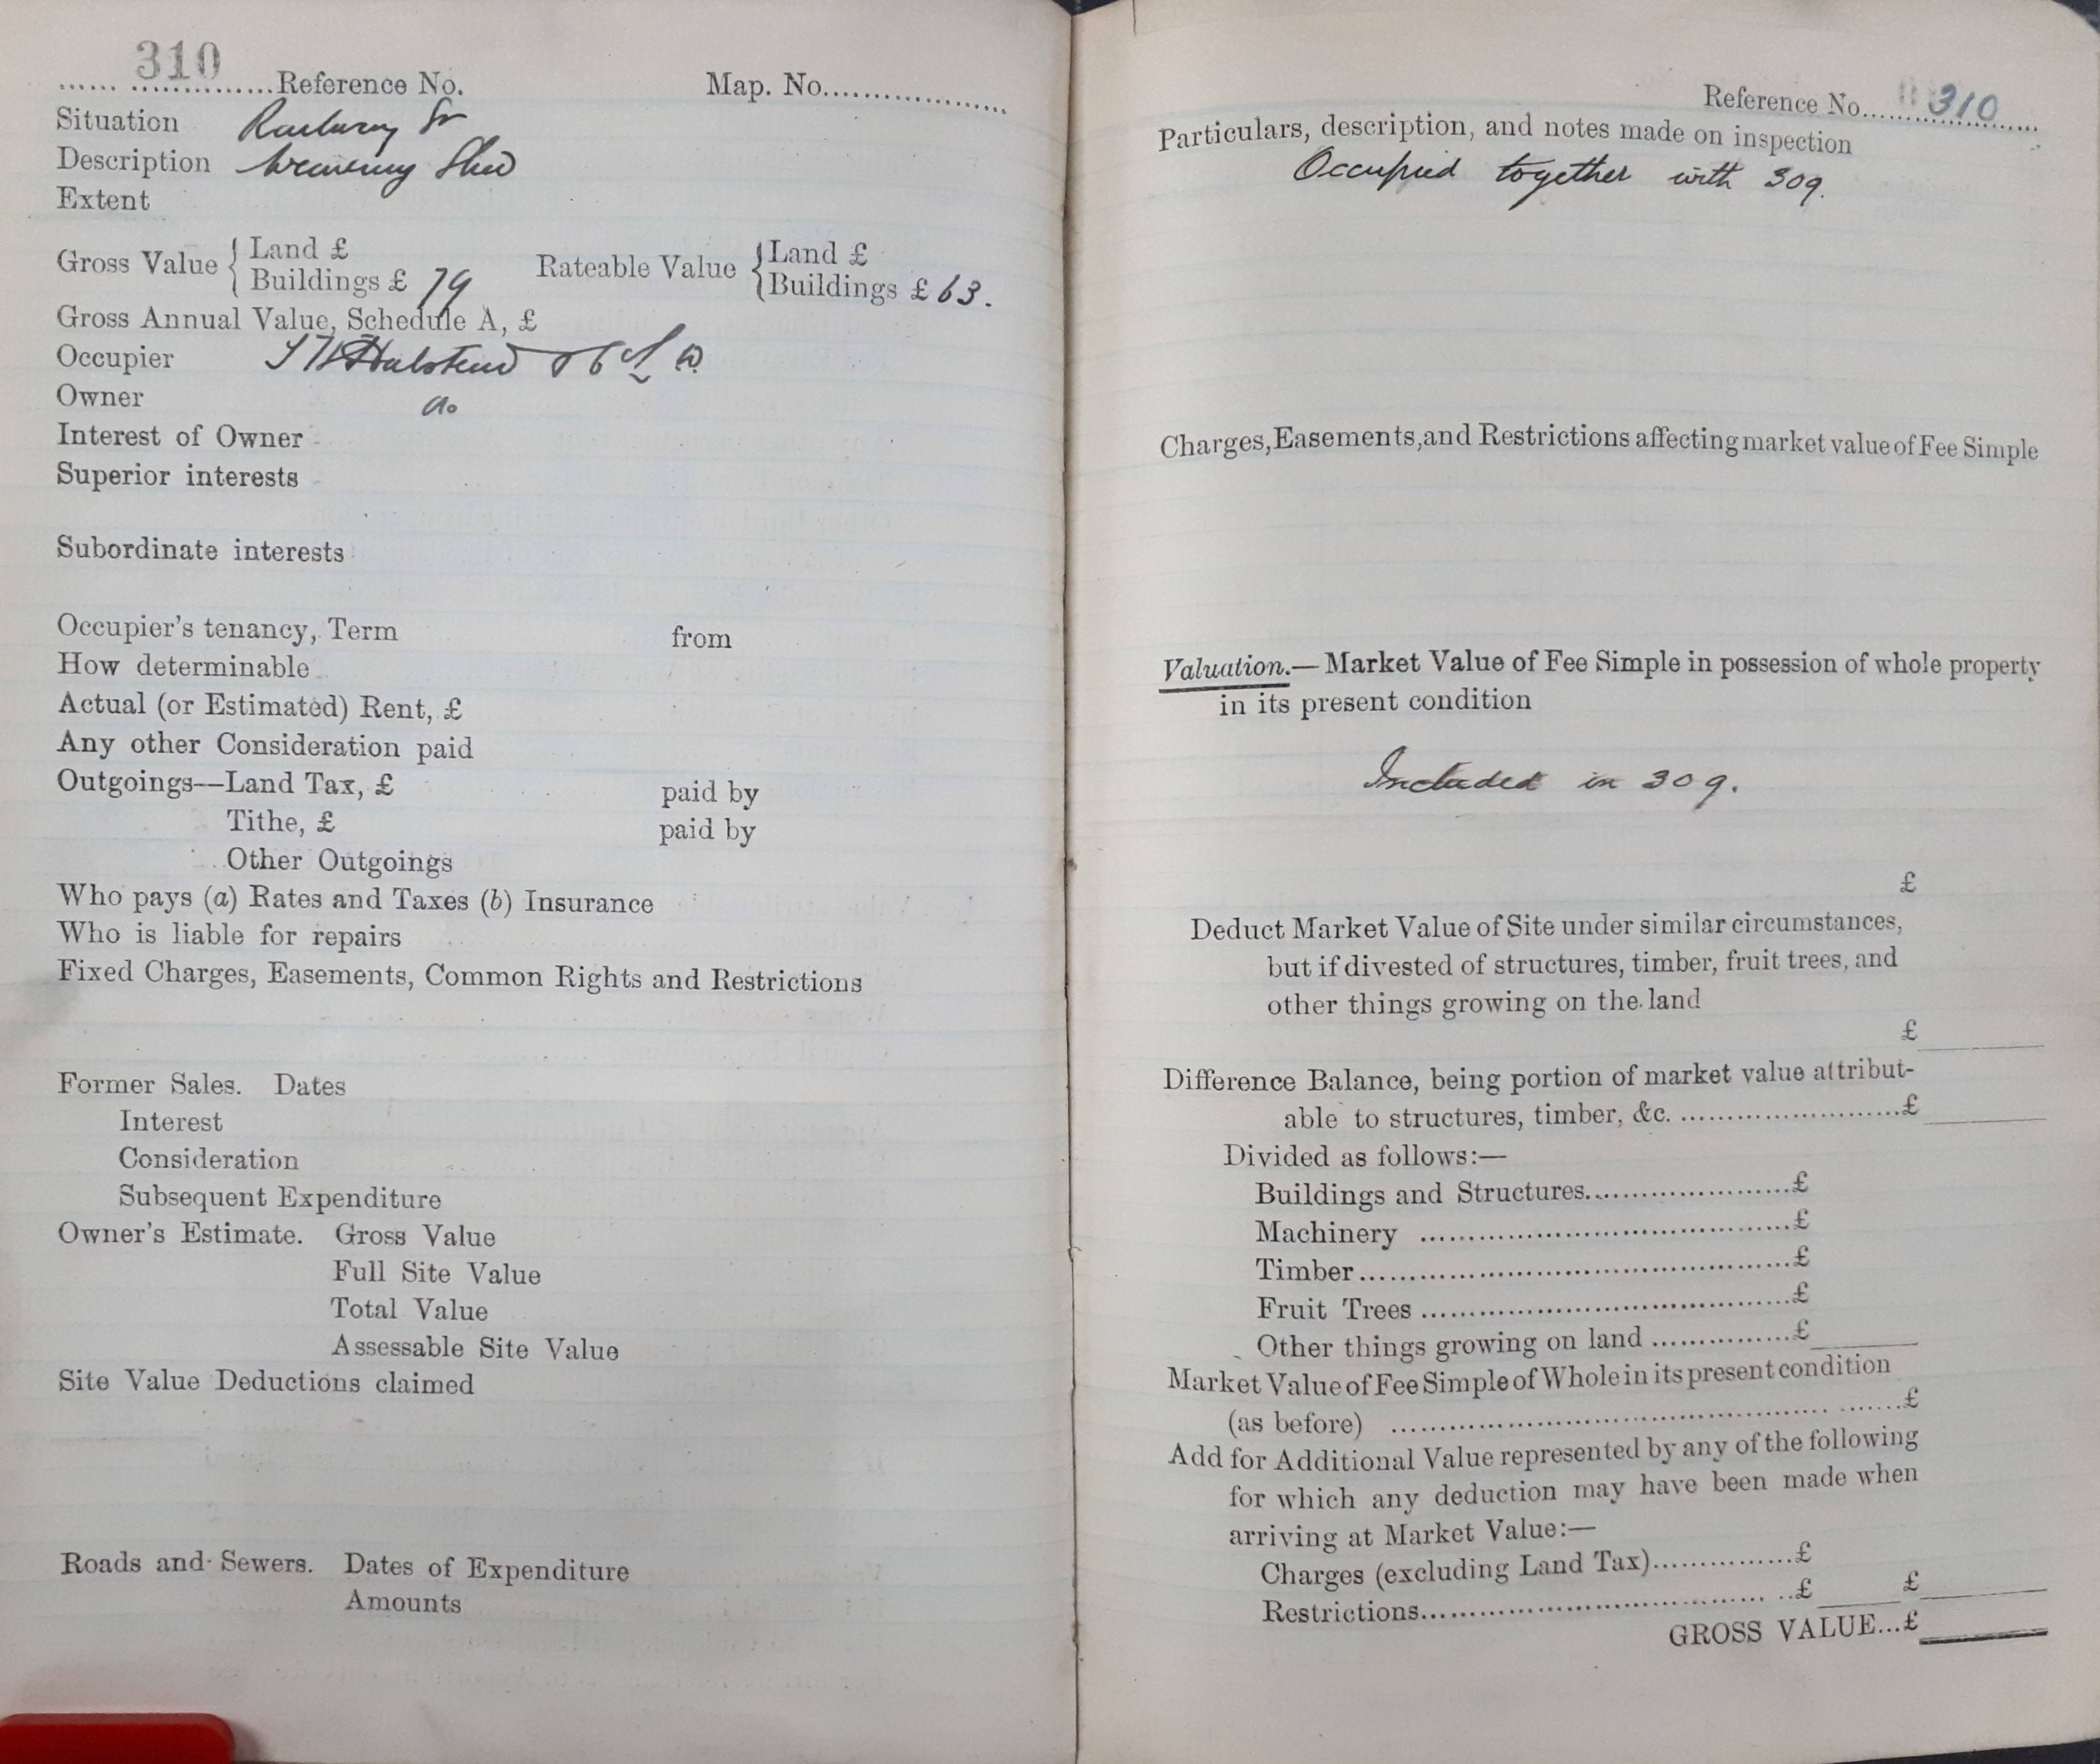 310
Reference No.
Map. No.
Situation Railway St
Description Weaving Shed
Extent
Gross Value { Land £
Buildings £ 79
Rateable Value { Land £
Buildings £ 63.
Gross Annual Value, Schedule A, £
Occupier Halstead & Co
Owner do
Interest of Owner
Superior interests
Subordinate interests
Occupier's tenancy, Term from
How determinable
Actual (or Estimated) Rent, £
Any other Consideration paid
Outgoings—Land Tax, £ paid by
Tithe, £ paid by
Other Outgoings
Who pays (a) Rates and Taxes (b) Insurance
Who is liable for repairs
Fixed Charges, Easements, Common Rights and Restrictions
Former Sales. Dates
Interest
Consideration
Subsequent Expenditure
Owner's Estimate. Gross Value
Full Site Value
Total Value
Assessable Site Value
Site Value Deductions claimed
Roads and Sewers. Dates of Expenditure
Amounts
Reference No. 310
Particulars, description, and notes made on inspection
Occupied together with 309.
Charges, Easements, and Restrictions affecting market value of Fee Simple
Valuation.— Market Value of Fee Simple in possession of whole property
in its present condition
Included in 309.
£
Deduct Market Value of Site under similar circumstances,
but if divested of structures, timber, fruit trees, and
other things growing on the land
£
Difference Balance, being portion of market value attribut-
able to structures, timber, &c. £
Divided as follows:—
Buildings and Structures £
Machinery £
Timber £
Fruit Trees £
Other things growing on land £
Market Value of Fee Simple of Whole in its present condition
(as before) £
Add for Additional Value represented by any of the following
for which any deduction may have been made when
arriving at Market Value:—
Charges (excluding Land Tax) £
Restrictions £ £
GROSS VALUE...£